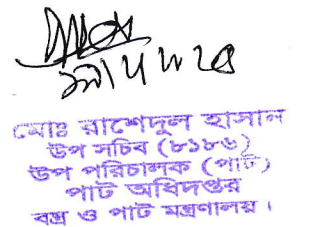 মোঃ রাশেদুল হাসান
উপ সচিব (৮১৮৬)
উপ পরিচালক (পাট)
পাট অধিদপ্তর
বস্ত্র ও পাট মন্ত্রণালয়।